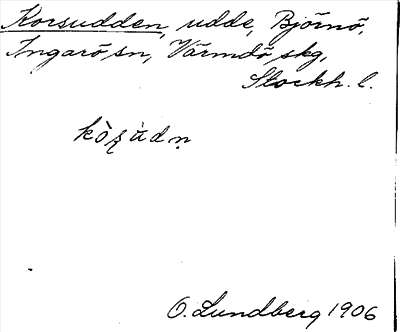 Korsudden, udde, Björnö,
Ingarö sn, Värmdö skg,
Stockh. l.
kòʂùdn̥
O. Lundberg 1906